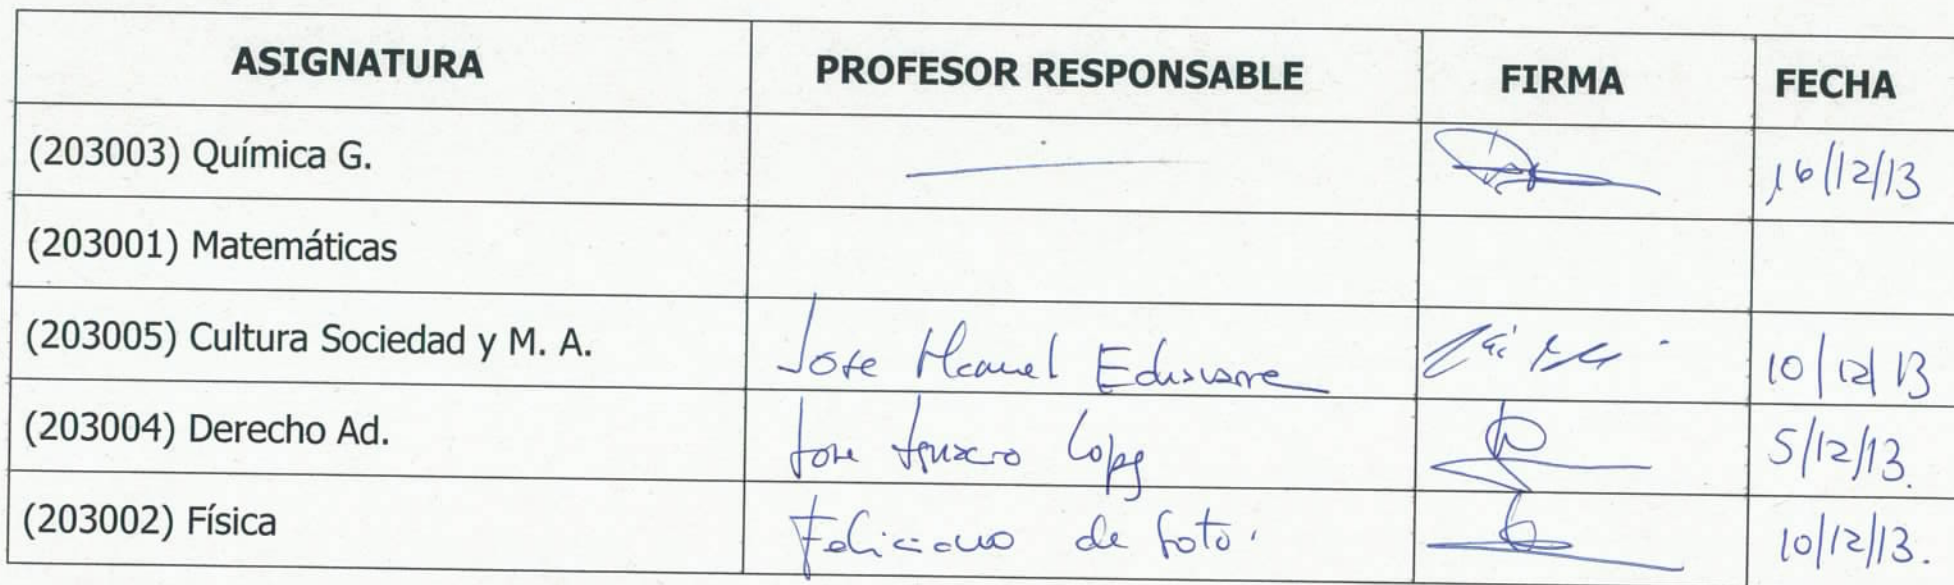 ASIGNATURA PROFESOR RESPONSABLE FIRMA FECHA
(203003) Química G. 16/12/13
(203001) Matemáticas
(203005) Cultura Sociedad y M. A. Jose Manuel 10/12/13
(203004) Derecho Ad. Jose Ignacio Lopez 5/12/13.
(203002) Física Feliciano de Soto. 10/12/13.